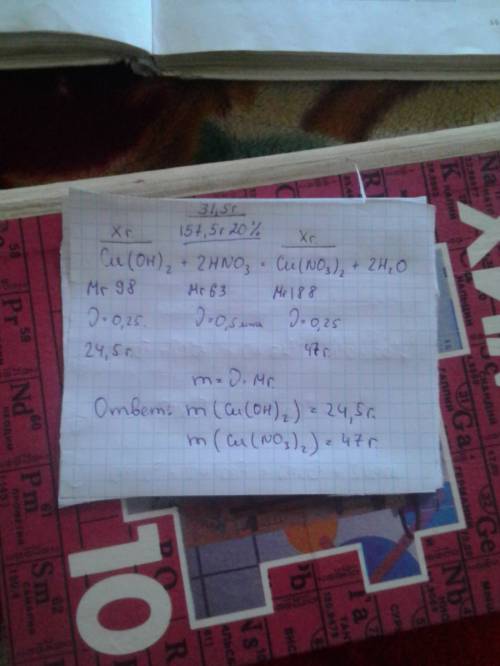 31,5г
157,5г 20%
Xг Xг
Cu(OH)₂ + 2HNO₃ = Cu(NO₃)₂ + 2H₂O
Mr 98 Mr 63 Mr 188
ν=0,25. ν=0,5 моль ν=0,25
24,5г. 47г.
m=ν·Mr.
Ответ: m(Cu(OH)₂)=24,5г.
m(Cu(NO₃)₂)=47г.
10
Pr
Nd
Pm
Sm
Pb
Ga
Ge
Nb
Ta
Ns